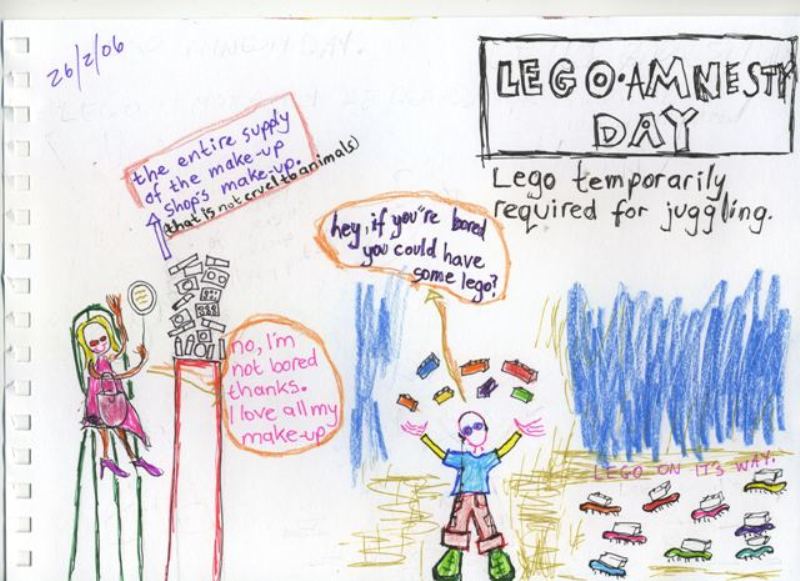 26/2/06
LEGO·AMNESTY
DAY
Lego temporarily
required for juggling.
the entire supply
of the make-up
shop's make-up.
(that is not cruel to animals)
hey, if you're bored
you could have
some lego?
no, I'm
not bored
thanks.
I love all my
make-up
LEGO ON IT'S WAY.